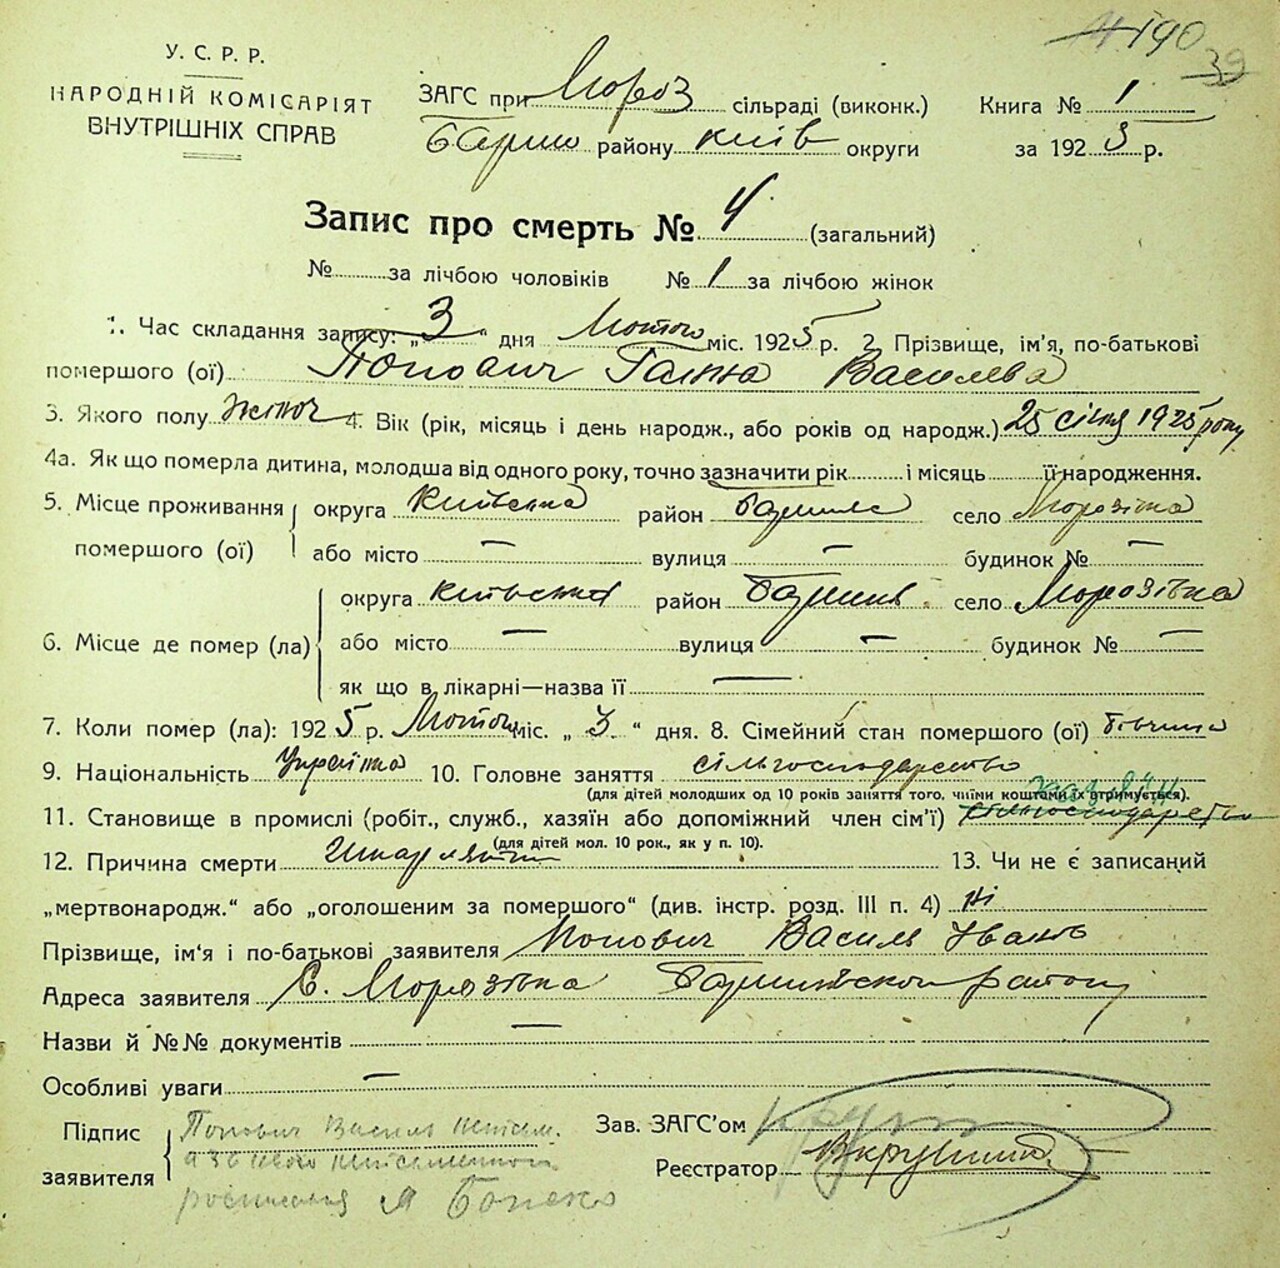 190
39
У. С. Р. Р.
НАРОДНІЙ КОМІСАРІЯТ
ВНУТРІШНІХ СПРАВ
ЗАГС при Мороз сільраді (виконк.)
Книга № 1
Бариш району Київ округи
за 1925 р.
Запис про смерть № 4 (загальний)
№ за лічбою чоловіків № 1 за лічбою жінок
1. Час складання запису: „3“ дня Лютого міс. 1925 р. 2. Прізвище, ім'я, по-батькові
помершого (ої) Попович Галька Василева
3. Якого полу жіноч 4. Вік (рік, місяць і день народж., або років од народж.) 25 січня 1925 року
4а. Як що померла дитина, молодша від одного року, точно зазначити рік і місяць її народження.
5. Місце проживання помершого (ої) округа Київська район село Морозівка
або місто — вулиця — будинок № —
6. Місце де помер (ла) округа Київська район Бариш село Морозівка
або місто — вулиця — будинок № —
як що в лікарні—назва її —
7. Коли помер (ла): 1925 р. Лютого міс. „3“ дня. 8. Сімейний стан помершого (ої) дівчина
9. Національність Українка 10. Головне заняття сільгосподарство
(для дітей молодших од 10 років заняття того, чиїми коштами їх отримується).
11. Становище в промислі (робіт., служб., хазяїн або допоміжний член сім'ї) хазяїн сільгосподарство
(для дітей мол. 10 рок., як у п. 10).
12. Причина смерти Шкарлятина 13. Чи не є записаний
„мертвонародж.“ або „оголошеним за помершого“ (див. інстр. розд. III п. 4) Ні
Прізвище, ім'я і по-батькові заявителя Попович Василь Іванів
Адреса заявителя С. Морозівка Баришівського району
Назви й №№ документів —
Особливі уваги —
Підпис заявителя Попович Василь
Зав. ЗАГС'ом
Реєстратор